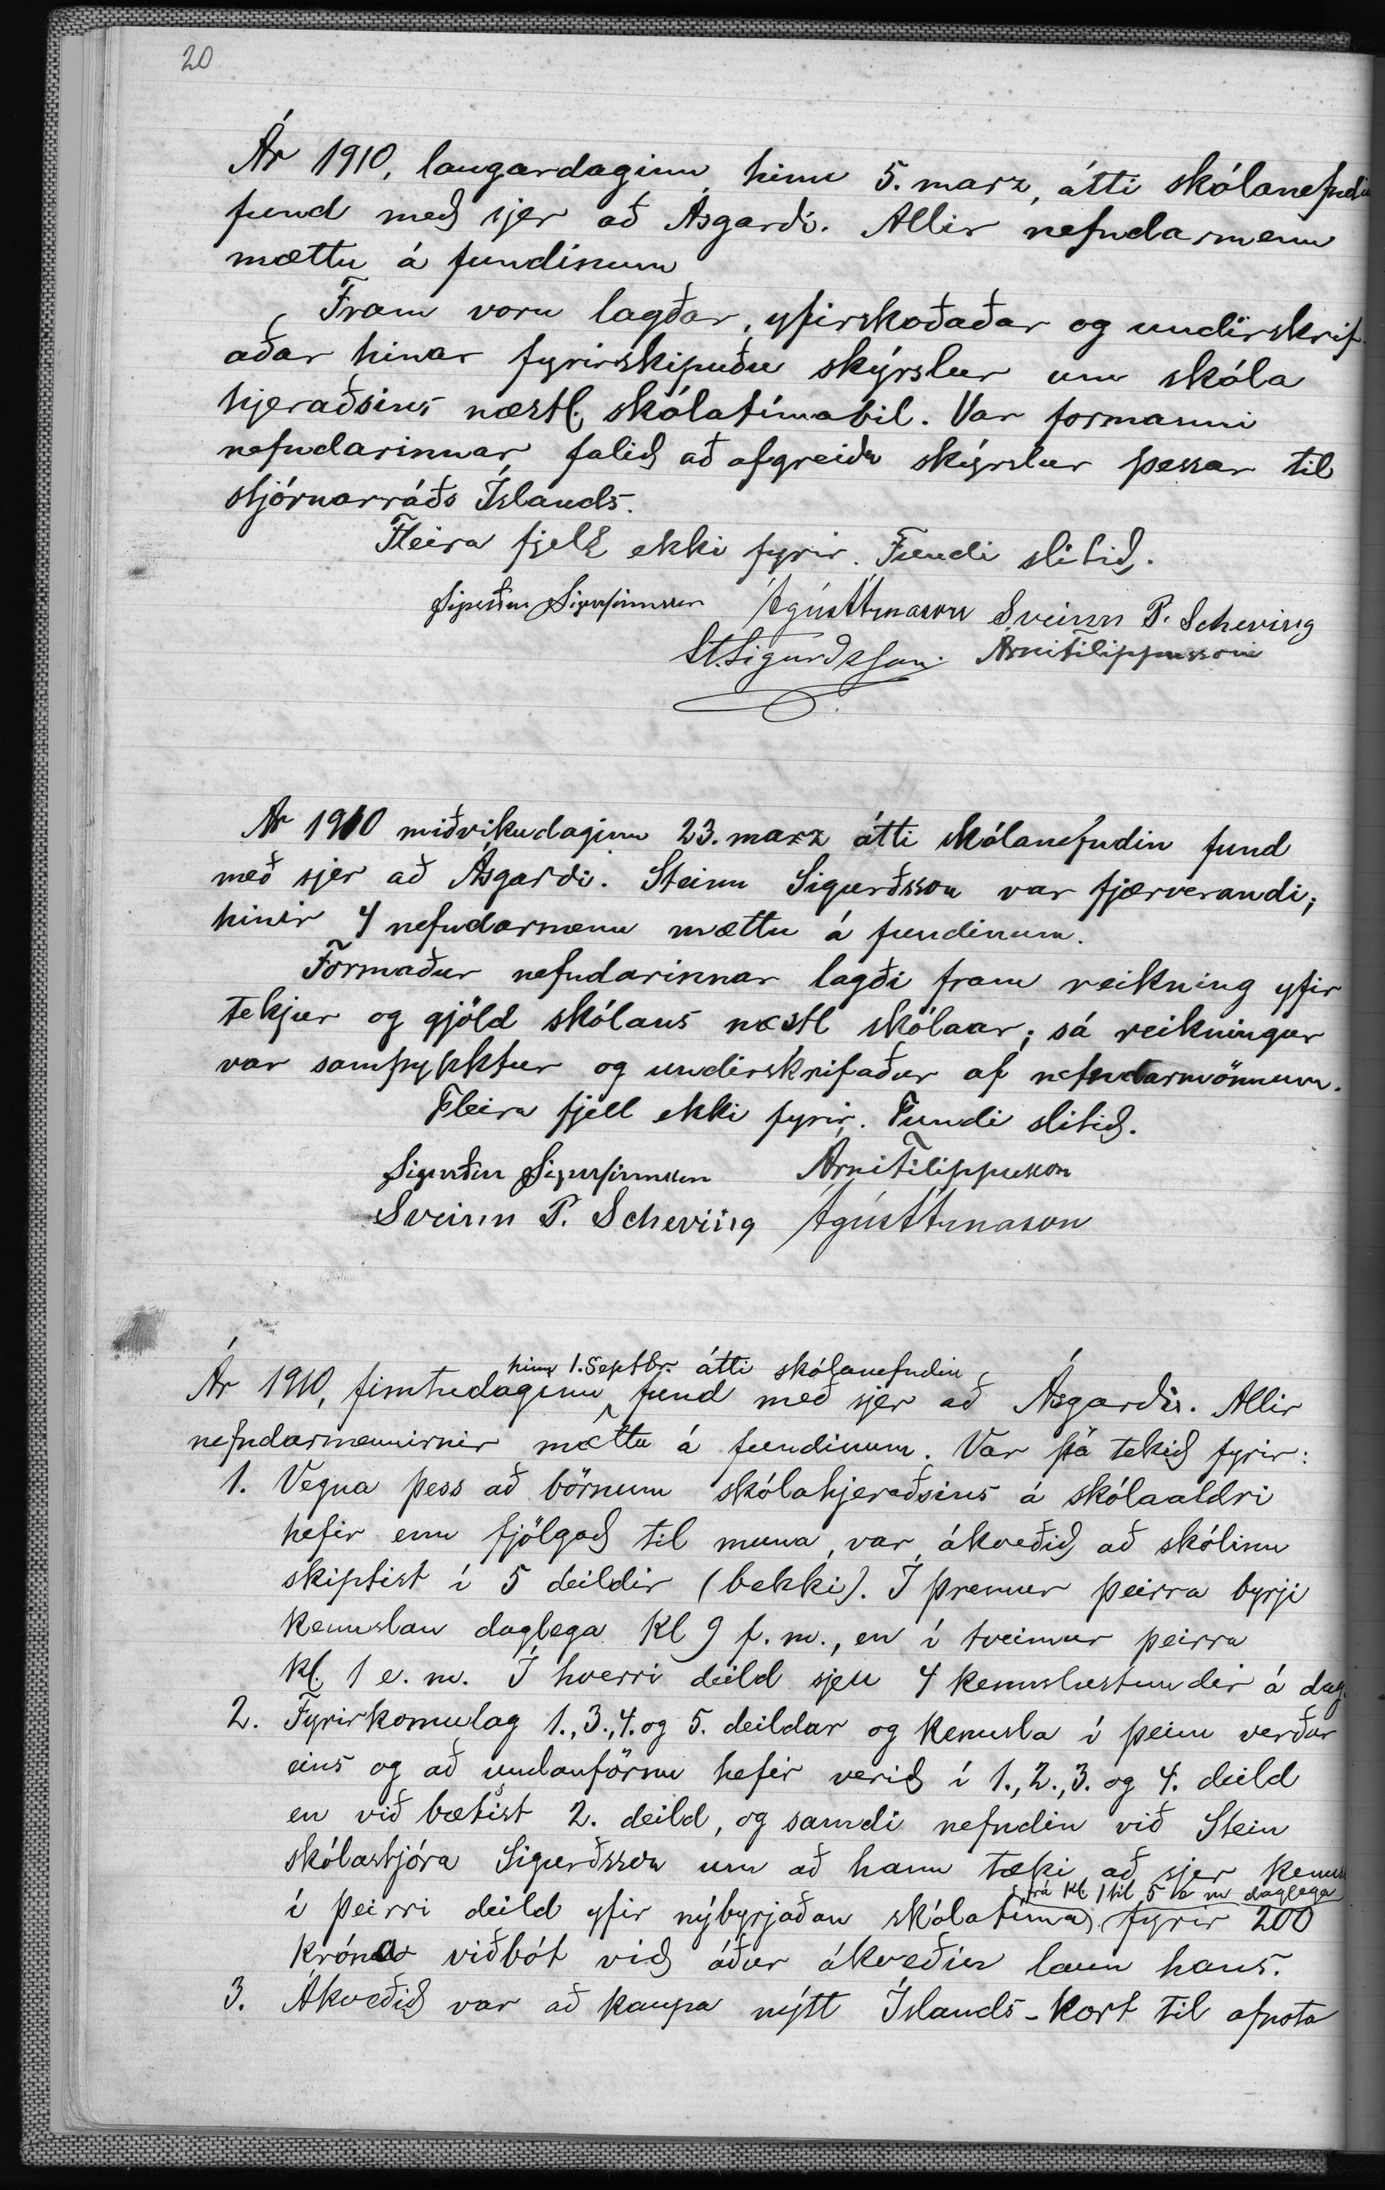 20
Ár 1910, laugardaginn, hinn 5. marz, átti skólanefndin
fund með sjer að Ásgarði. Allir nefndarmenn
mættu á fundinum
Fram voru lagðar, yfirskoðaðar og undirskrif-
aðar hinar fyrirskipuðu skýrslur um skóla
hjeraðsins næstl. skólatímabil. Var formanni
nefndarinnar falið að afgreiða skýrslur þessar til
stjórnarráðs Íslands.
Fleira fjell ekki fyrir. Fundi slitið.
Sigurður Sigurfinnsson Ágúst Árnason Sveinn P. Scheving
St. Sigurðsson. Árni Filippusson
Ár 1910 miðvikudaginn 23. marz átti skólanefndin fund
með sjer að Ásgarði. Steinn Sigurðsson var fjærverandi;
hinir 4 nefndarmenn mættu á fundinum.
Formaður nefndarinnar lagði fram reikning yfir
tekjur og gjöld skólans næstl skólaár; sá reikningur
var samþykktur og undirskrifaður af nefndarmönnum.
Fleira fjell ekki fyrir. Fundi slitið.
Sigurður Sigurfinnsson Árni Filippusson
Sveinn P. Scheving Ágúst Árnason
hinn 1. Septbr. átti skólanefndin
Ár 1910, fimtudaginn fund með sjer að Ásgarði. Allir
nefndarmennirnir mættu á fundinum. Var þá tekið fyrir:
1. Vegna þess að börnum skólahjeraðsins á skólaaldri
hefir enn fjölgað til muna, var ákveðið að skólinn
skiptist í 5 deildir (bekki). Í þremur þeirra byrji
kennslan daglega kl 9 f. m., en í tveimur þeirra
kl. 1 e. m. Í hverri deild sjeu 4 kennslustundir á dag.
2. Fyrirkomulag 1., 3., 4. og 5. deildar og kennsla í þeim verður
eins og að undanförnu hefir verið í 1., 2., 3. og 4. deild
en við bætist 2. deild, og samdi nefndin við Stein
skólastjóra Sigurðsson um að hann tæki að sjer kennsl
frá kl 1 til 5 e m daglega
í þeirri deild yfir nýbyrjaðan skólatíma, fyrir 200
króna viðbót við áður ákveðin laun hans.
3. Ákveðið var að kaupa nýtt Íslands-kort til afnota